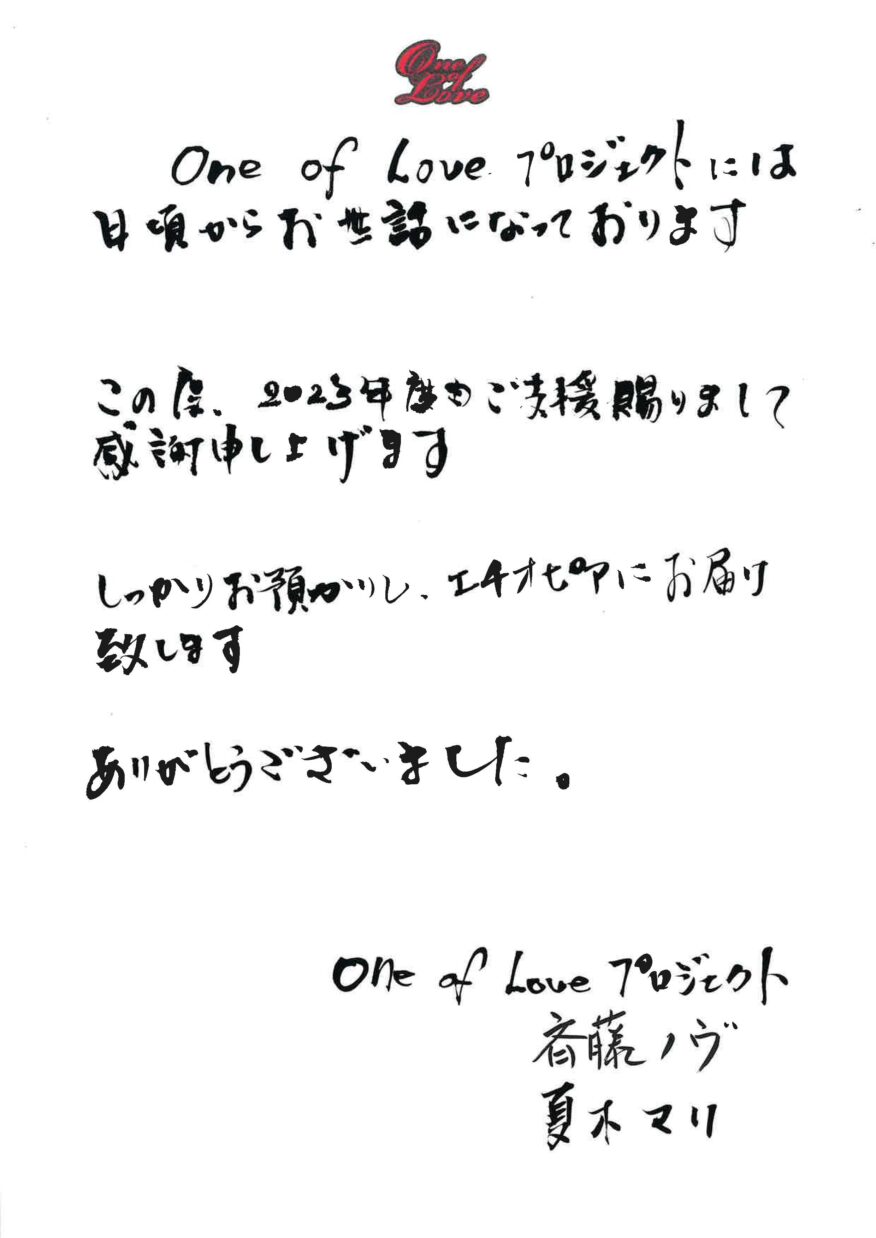 One of Love
One of Love プロジェクトには
日頃からお世話になっております
この度、2023年度もご支援賜りまして
感謝申し上げます
しっかりお預かりし、エチオピアにお届け
致します
ありがとうございました。
One of Love プロジェクト
斉藤ノヴ
夏木マリ